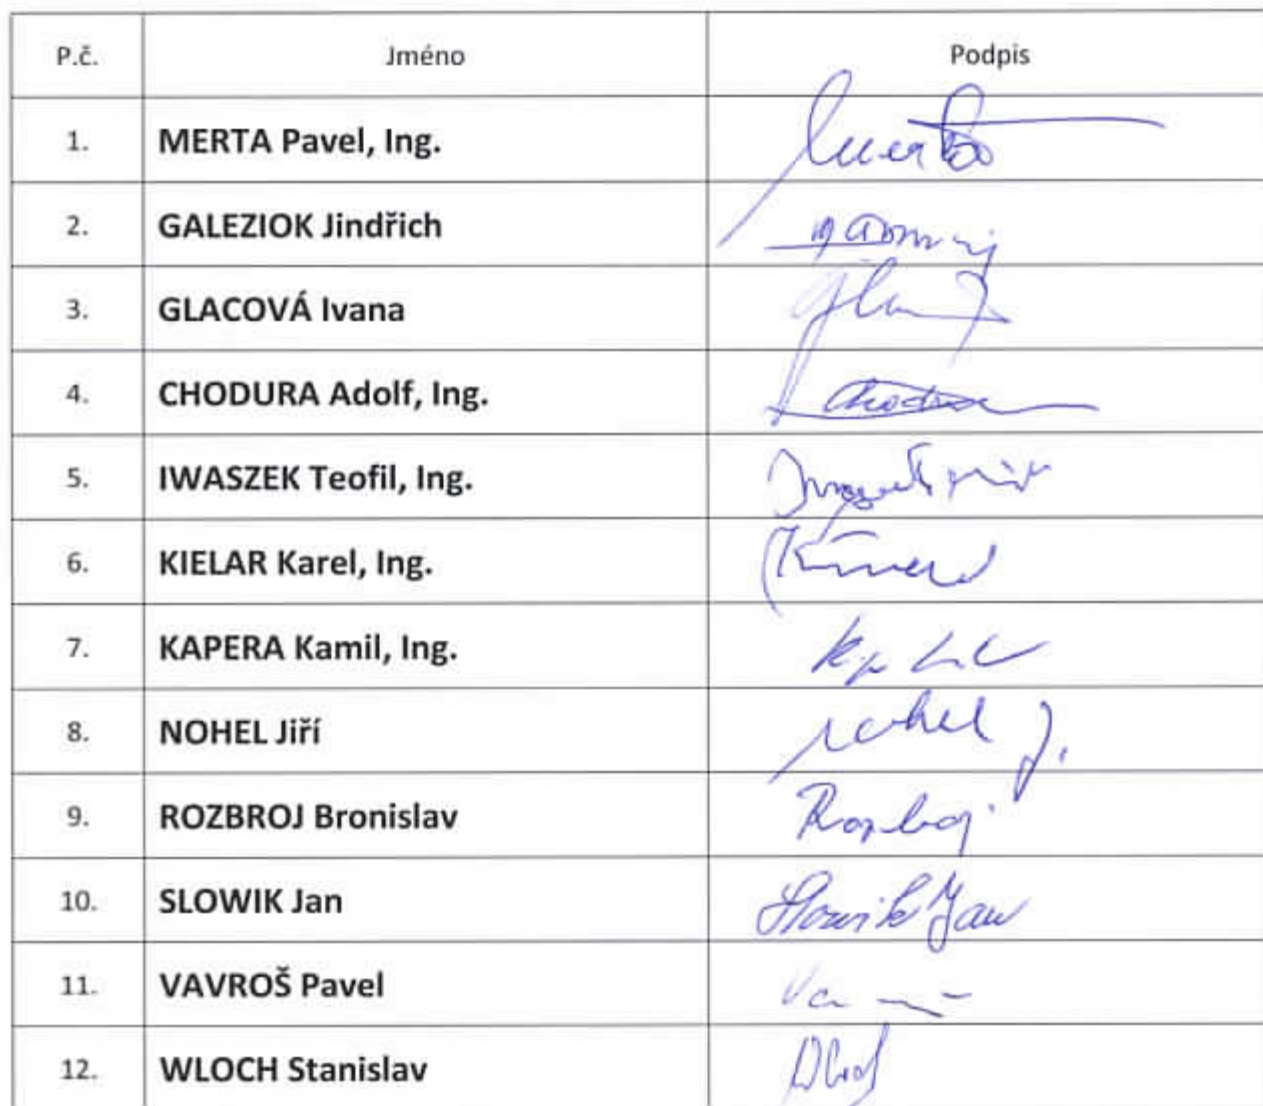 P.č. Jméno Podpis
1. MERTA Pavel, Ing. Merta
2. GALEZIOK Jindřich
3. GLACOVÁ Ivana
4. CHODURA Adolf, Ing. Chodura
5. IWASZEK Teofil, Ing.
6. KIELAR Karel, Ing.
7. KAPERA Kamil, Ing.
8. NOHEL Jiří Nohel J.
9. ROZBROJ Bronislav Rozbroj
10. SLOWIK Jan Slowik Jan
11. VAVROŠ Pavel
12. WLOCH Stanislav